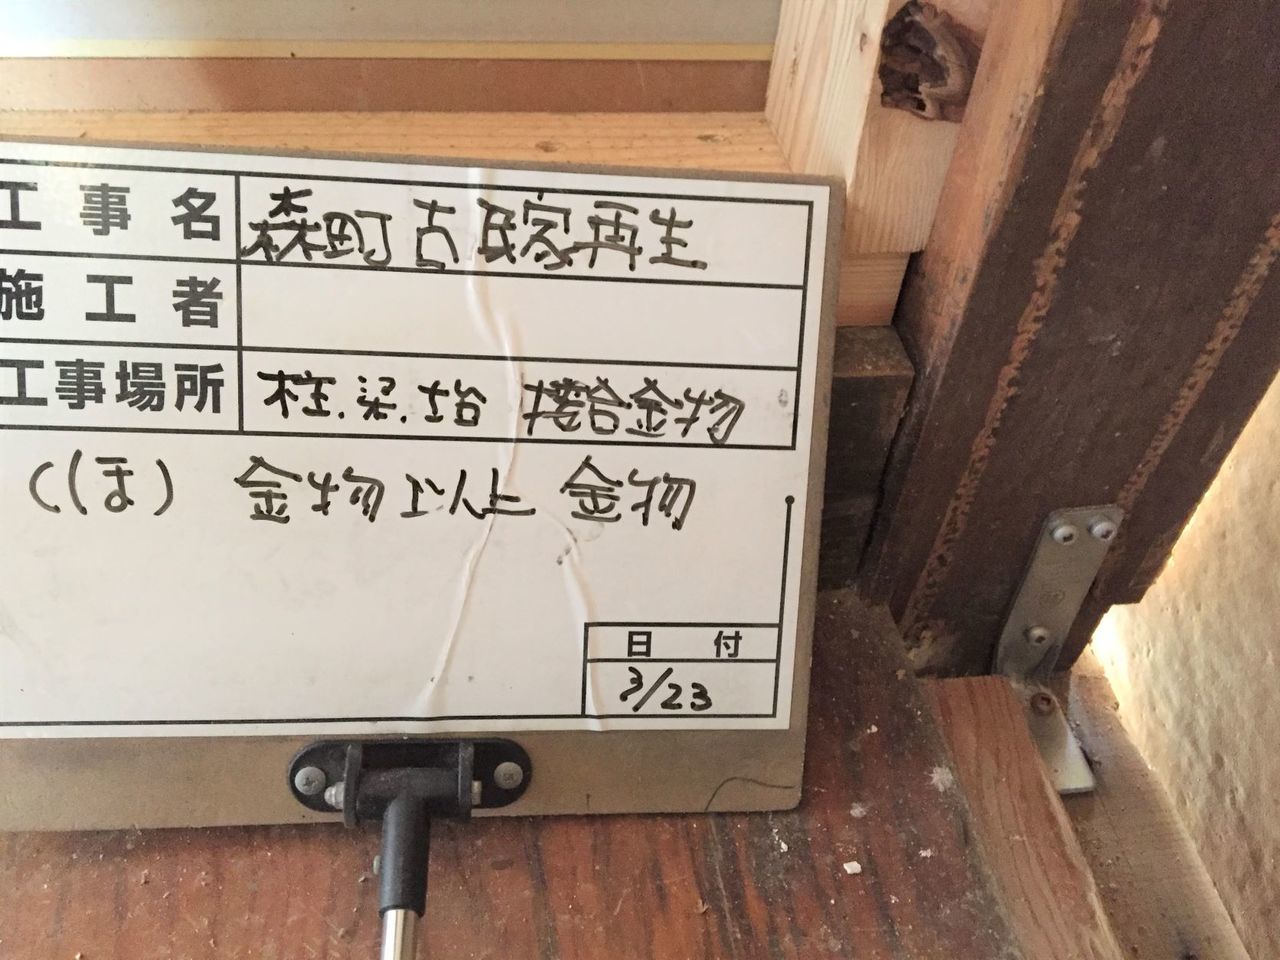 工事名 森町古民家再生
施工者
工事場所 柱.梁.土台 接合金物
(ほ) 金物以上 金物
日付
3/23